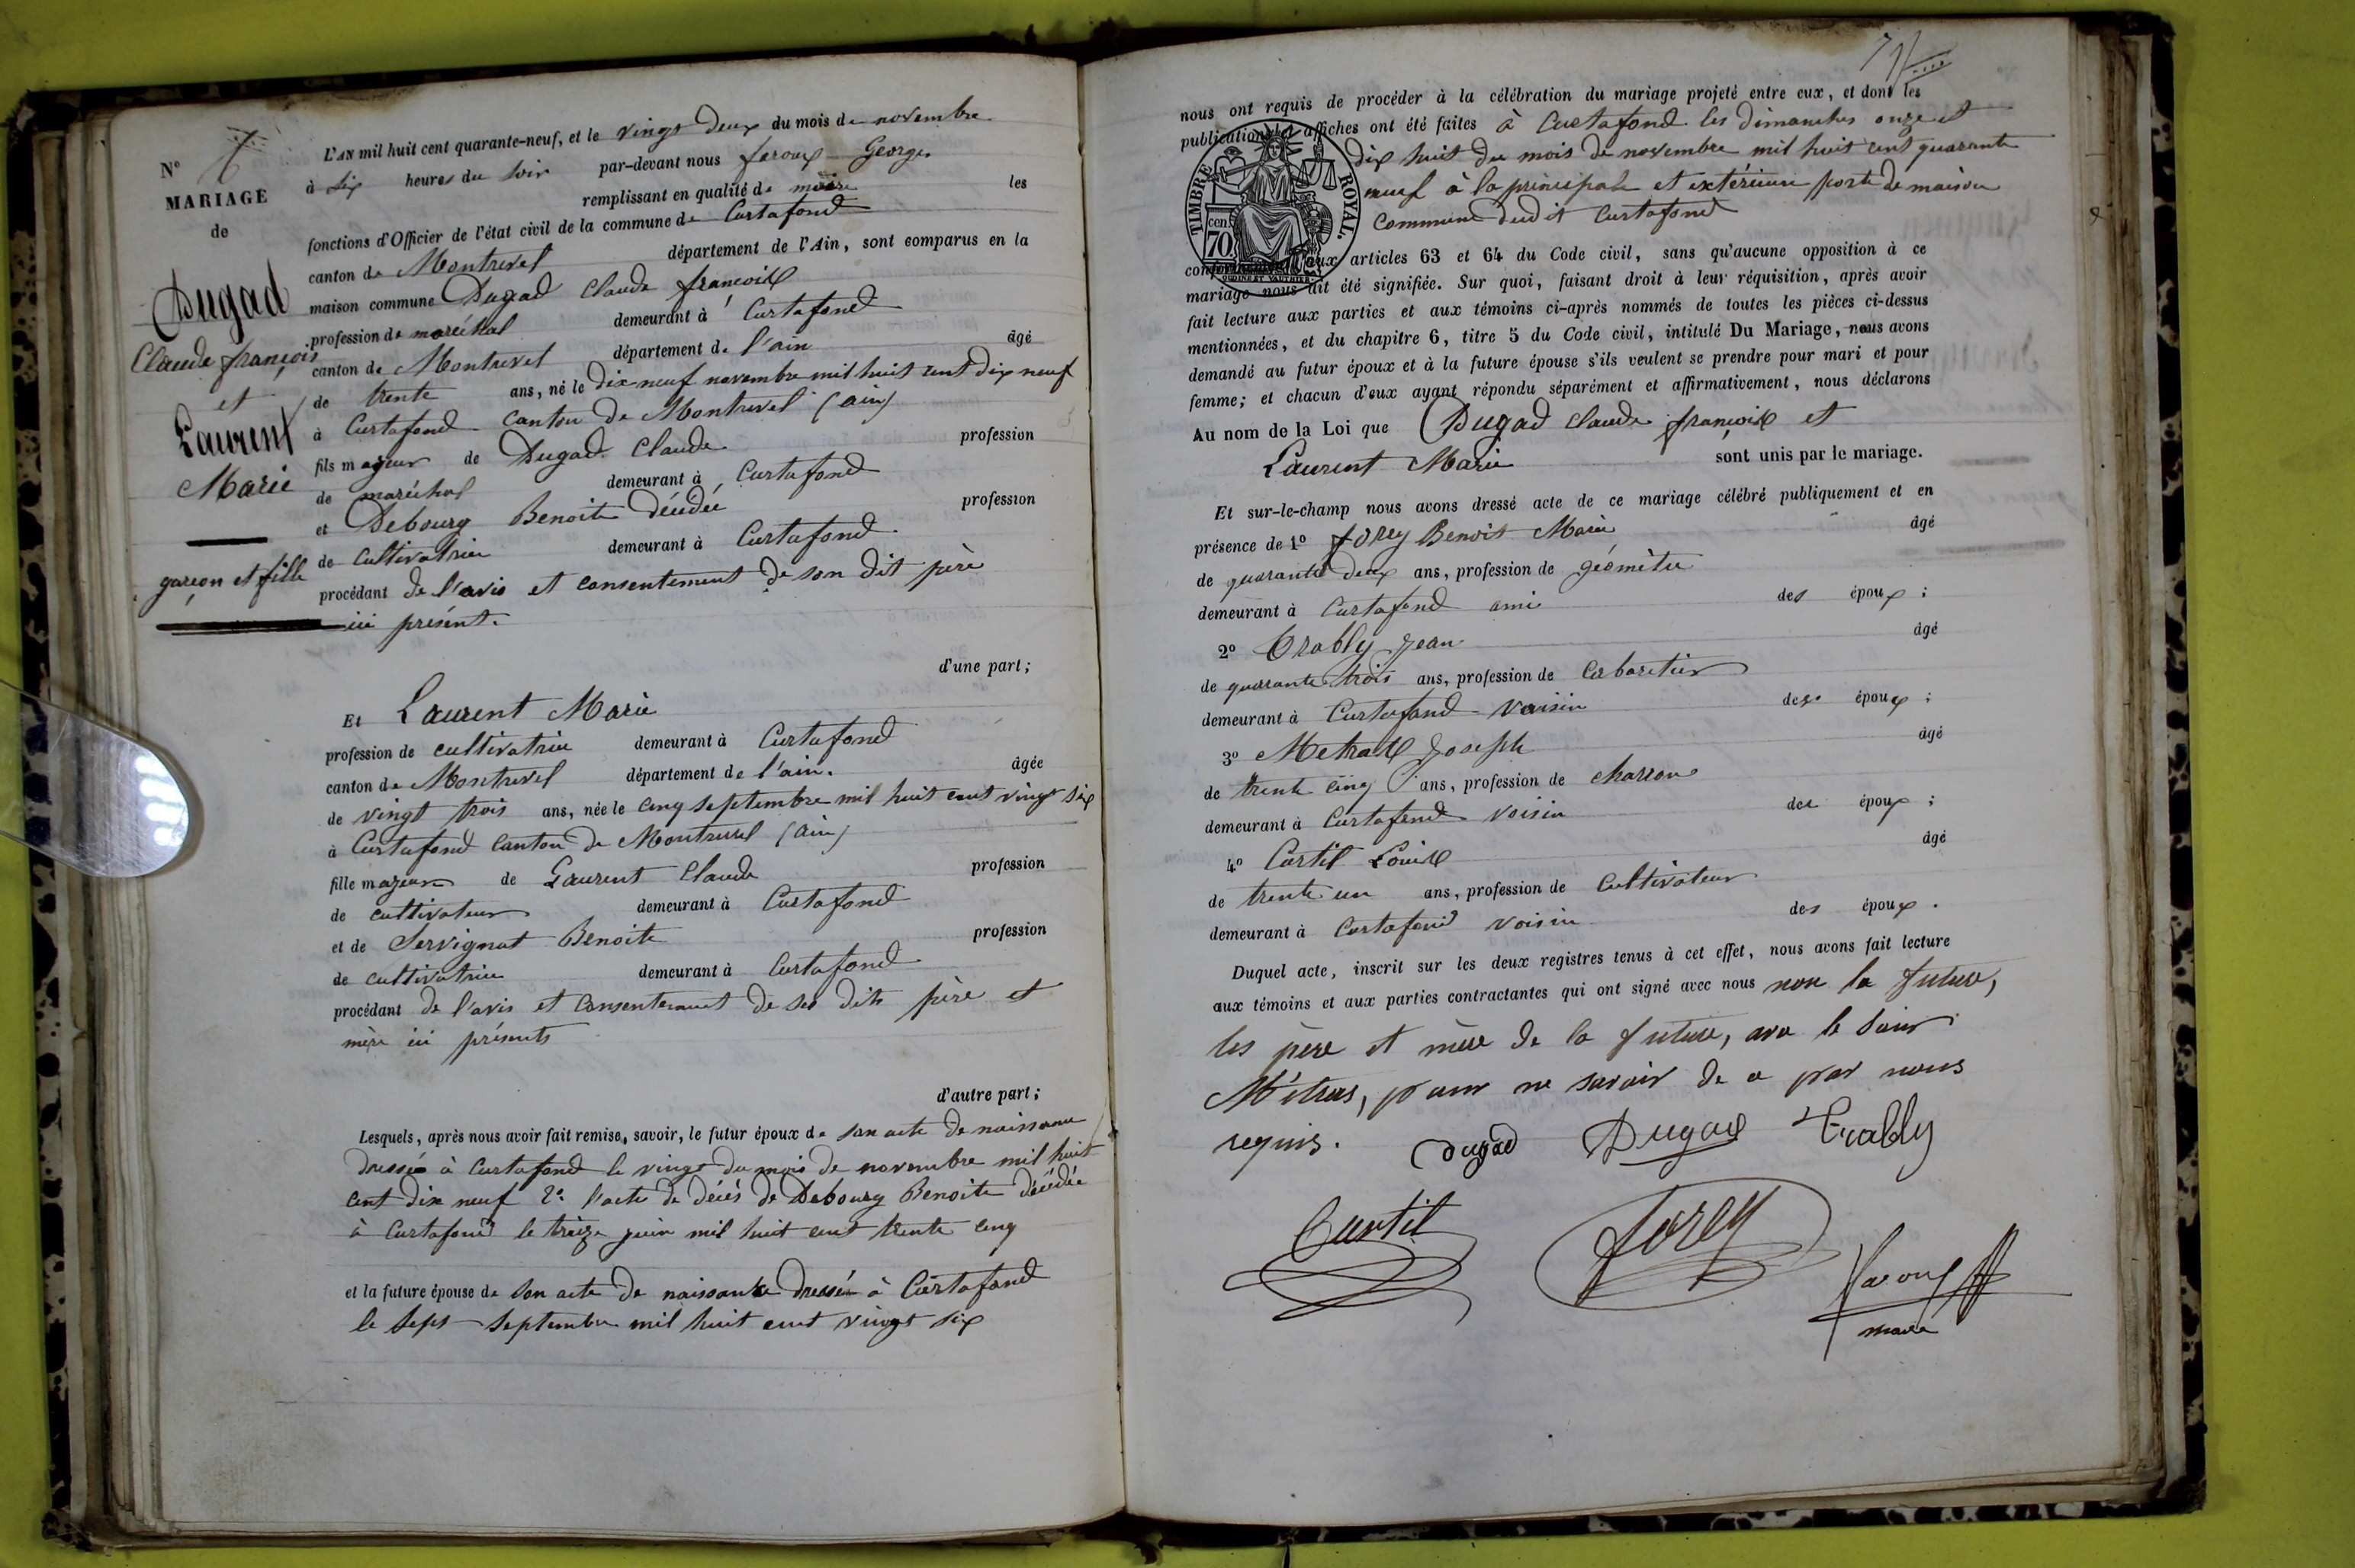 N°
MARIAGE
de
Dugad
Claude françois
et
Laurent
Marie
garçon et fille
L'AN mil huit cent quarante-neuf, et le vingt deux du mois de novembre
à six heures du soir par-devant nous feroux George
remplissant en qualité de maire les
fonctions d'Officier de l'état civil de la commune de Curtafond
canton de Montrevel département de l'Ain, sont comparus en la
maison commune Dugad Claude françois
profession de maréchal demeurant à Curtafond
canton de Montrevel département de l'ain âgé
de trente ans, né le dix neuf novembre mil huit cent dix neuf
à Curtafond canton de Montrevel (ain)
fils majeur de Dugad Claude profession
de maréchal demeurant à Curtafond
et Debourg Benoite décédée profession
de cultivatrice demeurant à Curtafond
procédant de l'avis et consentement de son dit père
ici présent.
d'une part;
Et Laurent Marie
profession de cultivatrice demeurant à Curtafond
canton de Montrevel département de l'ain. âgée
de vingt trois ans, née le cinq septembre mil huit cent vingt six
à Curtafond canton de Montrevel (ain)
fille majeure de Laurent Claude profession
de cultivateur demeurant à Curtafond
et de Servignat Benoite profession
de cultivatrice demeurant à Curtafond
procédant de l'avis et consentement de ses dits père et
mère ici présents
d'autre part;
Lesquels, après nous avoir fait remise, savoir, le futur époux de son acte de naissance
dressé à Curtafond le vingt du mois de novembre mil huit
cent dix neuf 2° l'acte de décès de Debourg Benoite décédée
à Curtafond le treize juin mil huit cent trente cinq
et la future épouse de son acte de naissance dressé à Curtafond
le sept septembre mil huit cent vingt six
nous ont requis de procéder à la célébration du mariage projeté entre eux, et dont les
publications et affiches ont été faites à Curtafond les dimanches onze et
dix huit du mois de novembre mil huit cent quarante
neuf à la principale et extérieure porte de maison
commune dudit Curtafond
TIMBRE ROYAL.
70 cen.
conformément aux articles 63 et 64 du Code civil, sans qu'aucune opposition à ce
mariage nous ait été signifiée. Sur quoi, faisant droit à leur réquisition, après avoir
fait lecture aux parties et aux témoins ci-après nommés de toutes les pièces ci-dessus
mentionnées, et du chapitre 6, titre 5 du Code civil, intitulé Du Mariage, nous avons
demandé au futur époux et à la future épouse s'ils veulent se prendre pour mari et pour
femme; et chacun d'eux ayant répondu séparément et affirmativement, nous déclarons
Au nom de la Loi que Dugad Claude françois et
Laurent Marie sont unis par le mariage.
Et sur-le-champ nous avons dressé acte de ce mariage célébré publiquement et en
présence de 1° forey Benoit Marie âgé
de quarante deux ans, profession de géomètre
demeurant à Curtafond ami des époux ;
2° Trably Jean âgé
de quarante trois ans, profession de Cabaretier
demeurant à Curtafond voisin des époux ;
3° Metras Joseph âgé
de trente cinq ans, profession de charron
demeurant à Curtafond voisin des époux ;
4° Curtil Louis âgé
de trente un ans, profession de Cultivateur
demeurant à Curtafond voisin des époux .
Duquel acte, inscrit sur les deux registres tenus à cet effet, nous avons fait lecture
aux témoins et aux parties contractantes qui ont signé avec nous non la future,
les père et mère de la future, le Sieur
Métras, pour ne savoir de ce par nous
requis. Dugad Dugad Trably
Curtil forey
maire